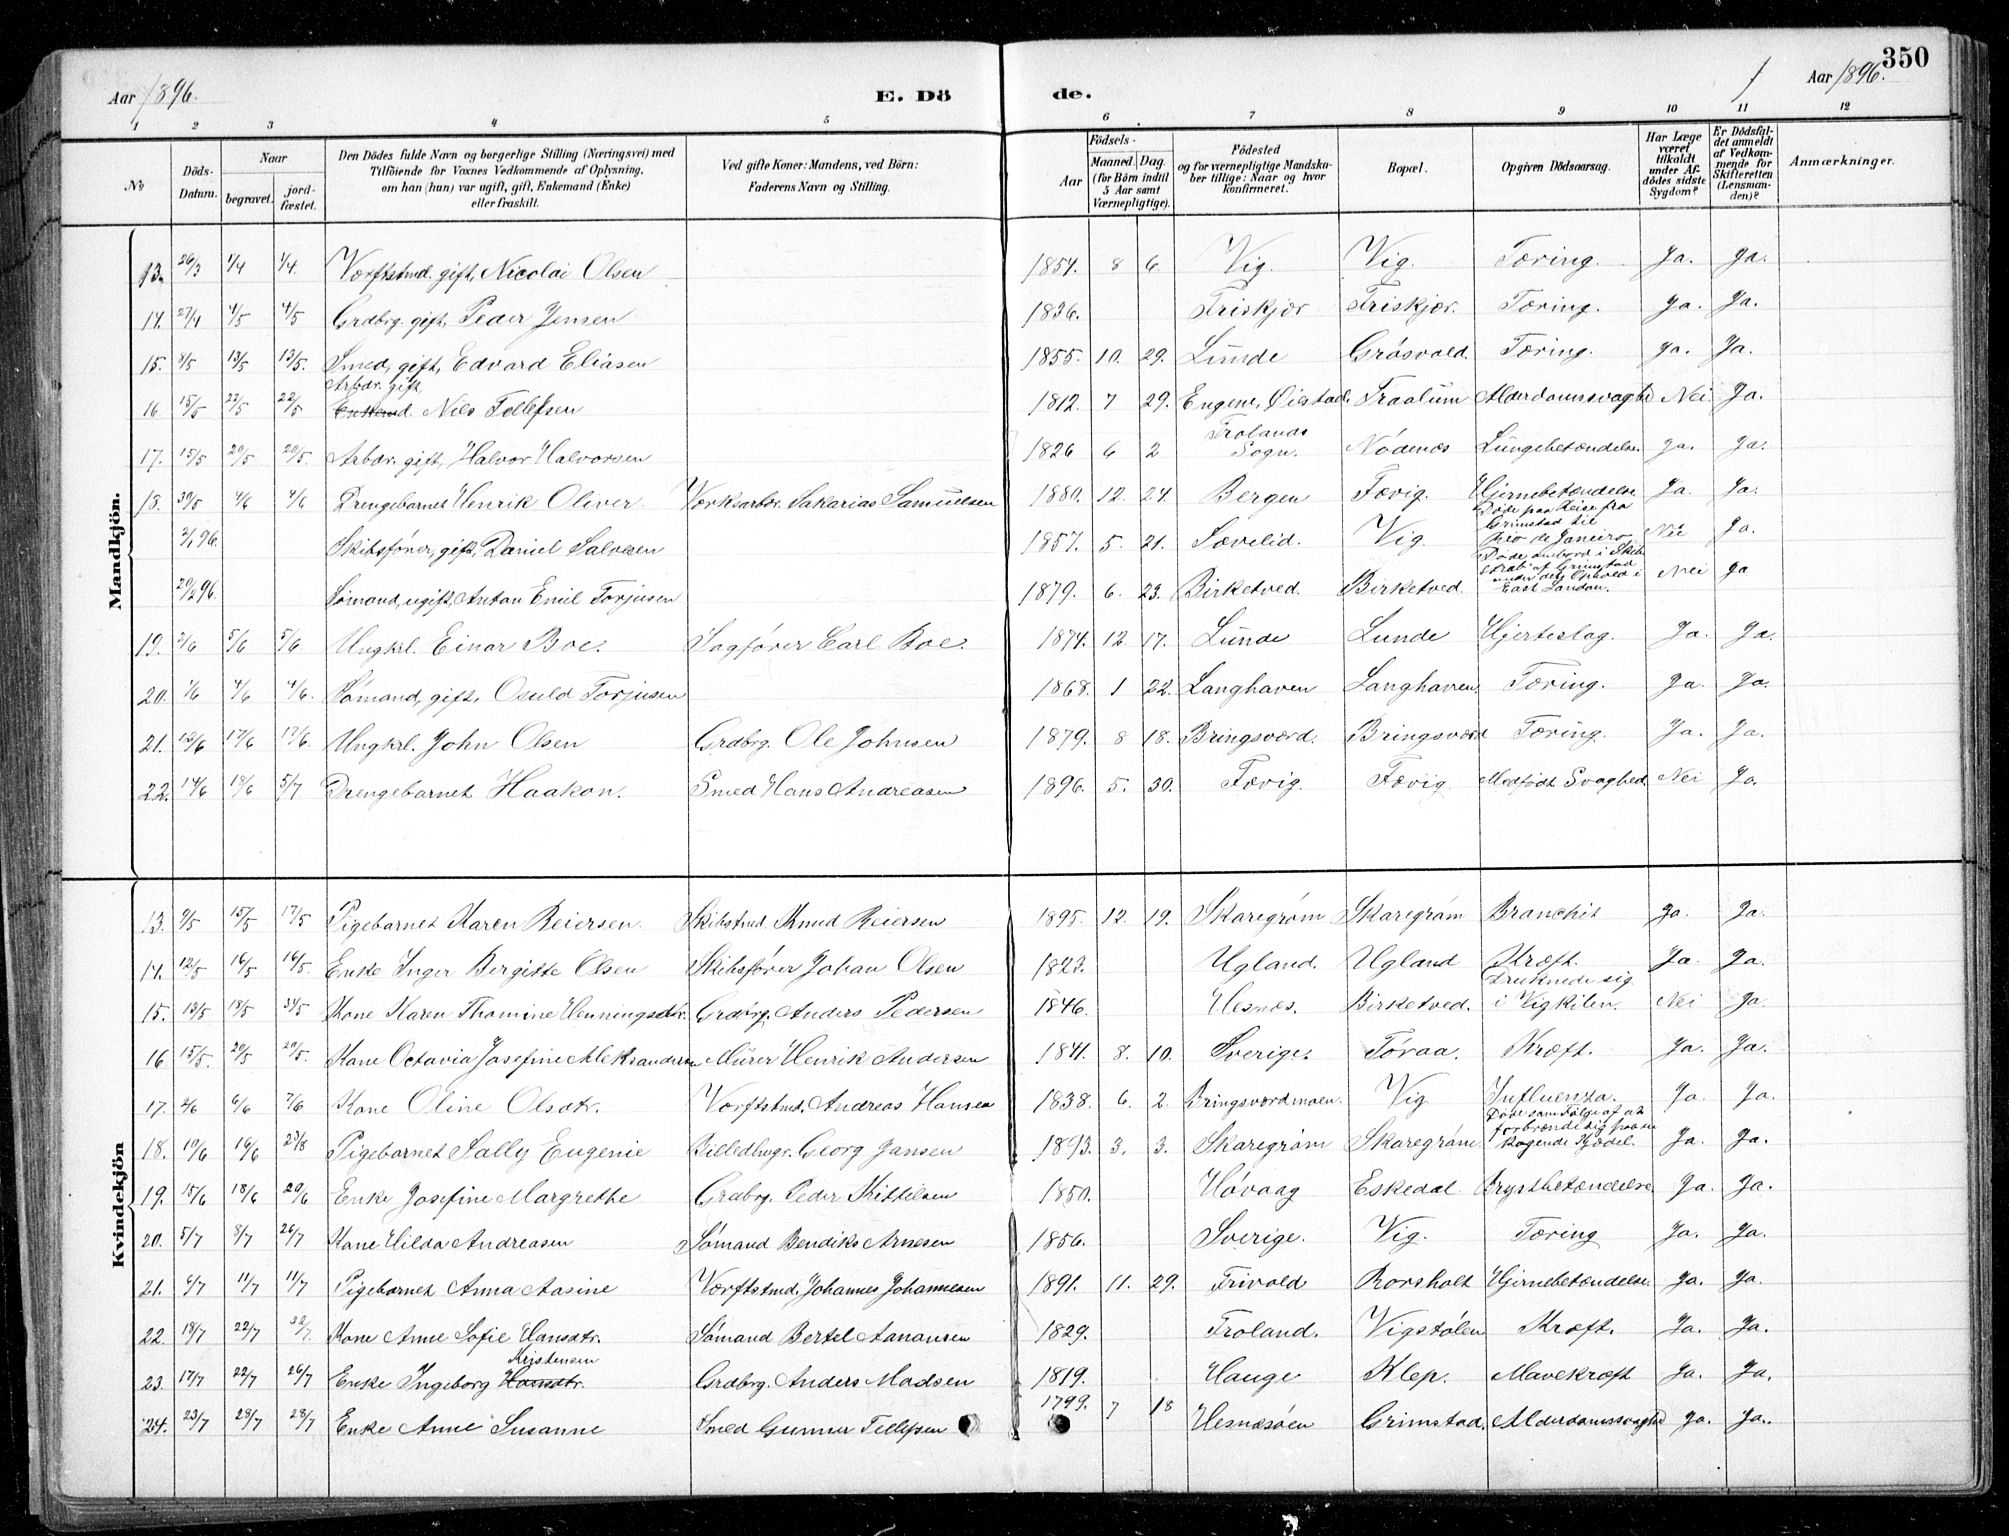 350
Aar 1896. E. Dö de. Aar 1896.
1 2 3 4 5 6 7 8 9 10 11 12
No
Döds-Datum.
Naar
begravet.
jord-fæstet.
Den Dödes fulde Navn og borgerlige Stilling (Næringsvei) med
Tilföiende for Voxnes Vedkommende af Oplysning,
om han (hun) var ugift, gift, Enkemand (Enke)
eller fraskilt.
Ved gifte Koner: Mandens, ved Börn:
Faderens Navn og Stilling.
Födsels-
Aar
Maaned. Dag.
(for Börn indtil
5 Aar samt
Værnepligtige).
Födested
og for værnepligtige Mandska-
ber tillige: Naar og hvor
konfirmeret.
Bopæl.
Opgiven Dödsaarsag.
Har Læge
været
tilkaldt
under Af-
dödes sidste
Sygdom?
Er Dödsfal-
det anmeldt
af Vedkom-
mende for
Skifteretten
(Lensman-
den)?
Anmærkninger.
Mandkjön.
13. 26/3 1/4 1/4. Værftstmd. gift, Nicolai Olsen 1854. 8 6. Vig. Vig. Tæring. Ja. Ja.
14. 27/4 4/5 4/5 Grdbrg. gift, Peder Jensen 1836. Friskjær Friskjær. Tæring. Ja. Ja.
15. 8/5 13/5 13/5. Smed, gift, Edvard Eliasen 1855. 10. 29. Lunde Gråsvold. Tæring. Ja. Ja.
Arbdr. gift,
16. 15/5 22/5 22/5 Enkemd. Nils Tellefsen 1812. 7 29. Engene, Øiestad. Traalum Alderdomssvaghd Nei Ja.
17. 15/5 20/5 20/5. Arbdr. gift, Halvor Halvorsen 1826 6 2 Frolands Sogn. Nödenæs Lungebetændelse Ja. Ja.
18. 30/5 4/6 4/6 Drengebarnet Henrik Oliver. Værksarbdr. Sakarias Samuelsen 1880. 12. 24. Bergen Fævig. Hjernebetændelse Ja. Ja.
2/1 96. Skibsfører, gift, Daniel Salvesen 1857. 5. 21. Sævelid. Vig. Døde paa Reise fra Grimstad til Rio de Janeiro Nei Ja.
20/2 96. Sømand, ugift, Anton Emil Torjusen 1879. 6. 23. Birketved. Birketved. Døde ombord i Skib af Grimstad under dets Ophold i East London. Nei Ja
19. 2/6 5/6 5/6 Ungkrl. Einar Boe. Sagfører Carl Boe. 1874. 12. 17. Lunde Lunde Hjerteslag. Ja. Ja.
20. 1/6 4/6 4/6. Sømand, gift, Osuld Torjusen 1868. 1 22. Langhaven Langhaven Tæring. Ja. Ja.
21. 12/6 17/6 17/6. Ungkrl. John Olsen Grdbrg. Ole Johnsen 1879. 8 18. Bringsværd. Bringsværd Tæring. Ja. Ja.
22. 14/6 18/6 5/7 Drengebarnet Haakon. Smed Hans Andreasen 1896. 5. 30. Fævig. Fævig Medfödt Svaghed. Nei Ja.
Kvindekjön
13. 9/5 15/5 17/5 Pigebarnet Karen Reiersen. Skibstmd. Knud Reiersen 1895. 12. 19. Skaregrøm Skaregrøm Bronchit Ja. Ja.
14. 12/5 16/5 16/5. Enke Inger Bergitte Olsen Skibsfører Johan Olsen 1823. Ugland. Ugland Kræft. Ja. Ja.
15. 13/5 18/5 31/5 Kone Karen Thomine Henningsdtr. Grdbrg. Anders Pedersen 1846. Hesnæs. Birketved. Druknede sig i Vigkilen. Nei Ja.
16 15/5. 20/5 20/5. Kone Octavia Josefine Aleksandersen Murer Henrik Andersen 1841. 8. 10. Sverige. Tøraa. Kræft. Ja. Ja.
17. 2/6 6/6 7/6 Kone Oline Olsdtr. Værftstmd. Andreas Hansen 1838. 6. 2. Bringsværdmoen. Vig Influenza. Ja Ja.
18. 10/6 16/6 23/8 Pigebarnet Sally Eugenie Billedhugr. Georg Jansen 1893. 3. 3. Skaregrøm Skaregrøm Døde som Følge af at forbrænde sig paa en kogende Kjedel. Ja. Ja.
19. 15/6 18/6 20/6 Enke Josefine Margrethe Grdbrg. Peder Kittilsen 1850. Høvaag Eskedal Brystbetændelse Ja. Ja.
20. 5/7 8/7 26/7 Kone Hilda Andreasen Sømand Bendiks Arnesen 1856. Sverige. Vig. Tæring Ja. Ja.
21. 6/7 11/7 11/7 Pigebarnet Anna Aasine Værftstmd. Johannes Johannesen 1891. 11. 29. Frivold Rorsholt Hjernebetændelse Ja. Ja.
22. 18/7 22/7 22/7. Kone Anne Sofie Hansdtr. Sømand Bertel Aanonsen 1829. Froland. Vigstølen Kræft. Ja. Ja.
Kristensen
23. 17/7 22/7 26/7 Enke Ingeborg Hansdtr. Grdbrg. Anders Madsen 1819. Hauge Klep. Mavekræft Ja. Ja.
24. 23/7 28/7 28/7 Enke Anne Susanne Smed Gunner Tellefsen 1799. 7 18 Hesnæsøen Grimstad. Alderdomssvaghed Ja. Ja.